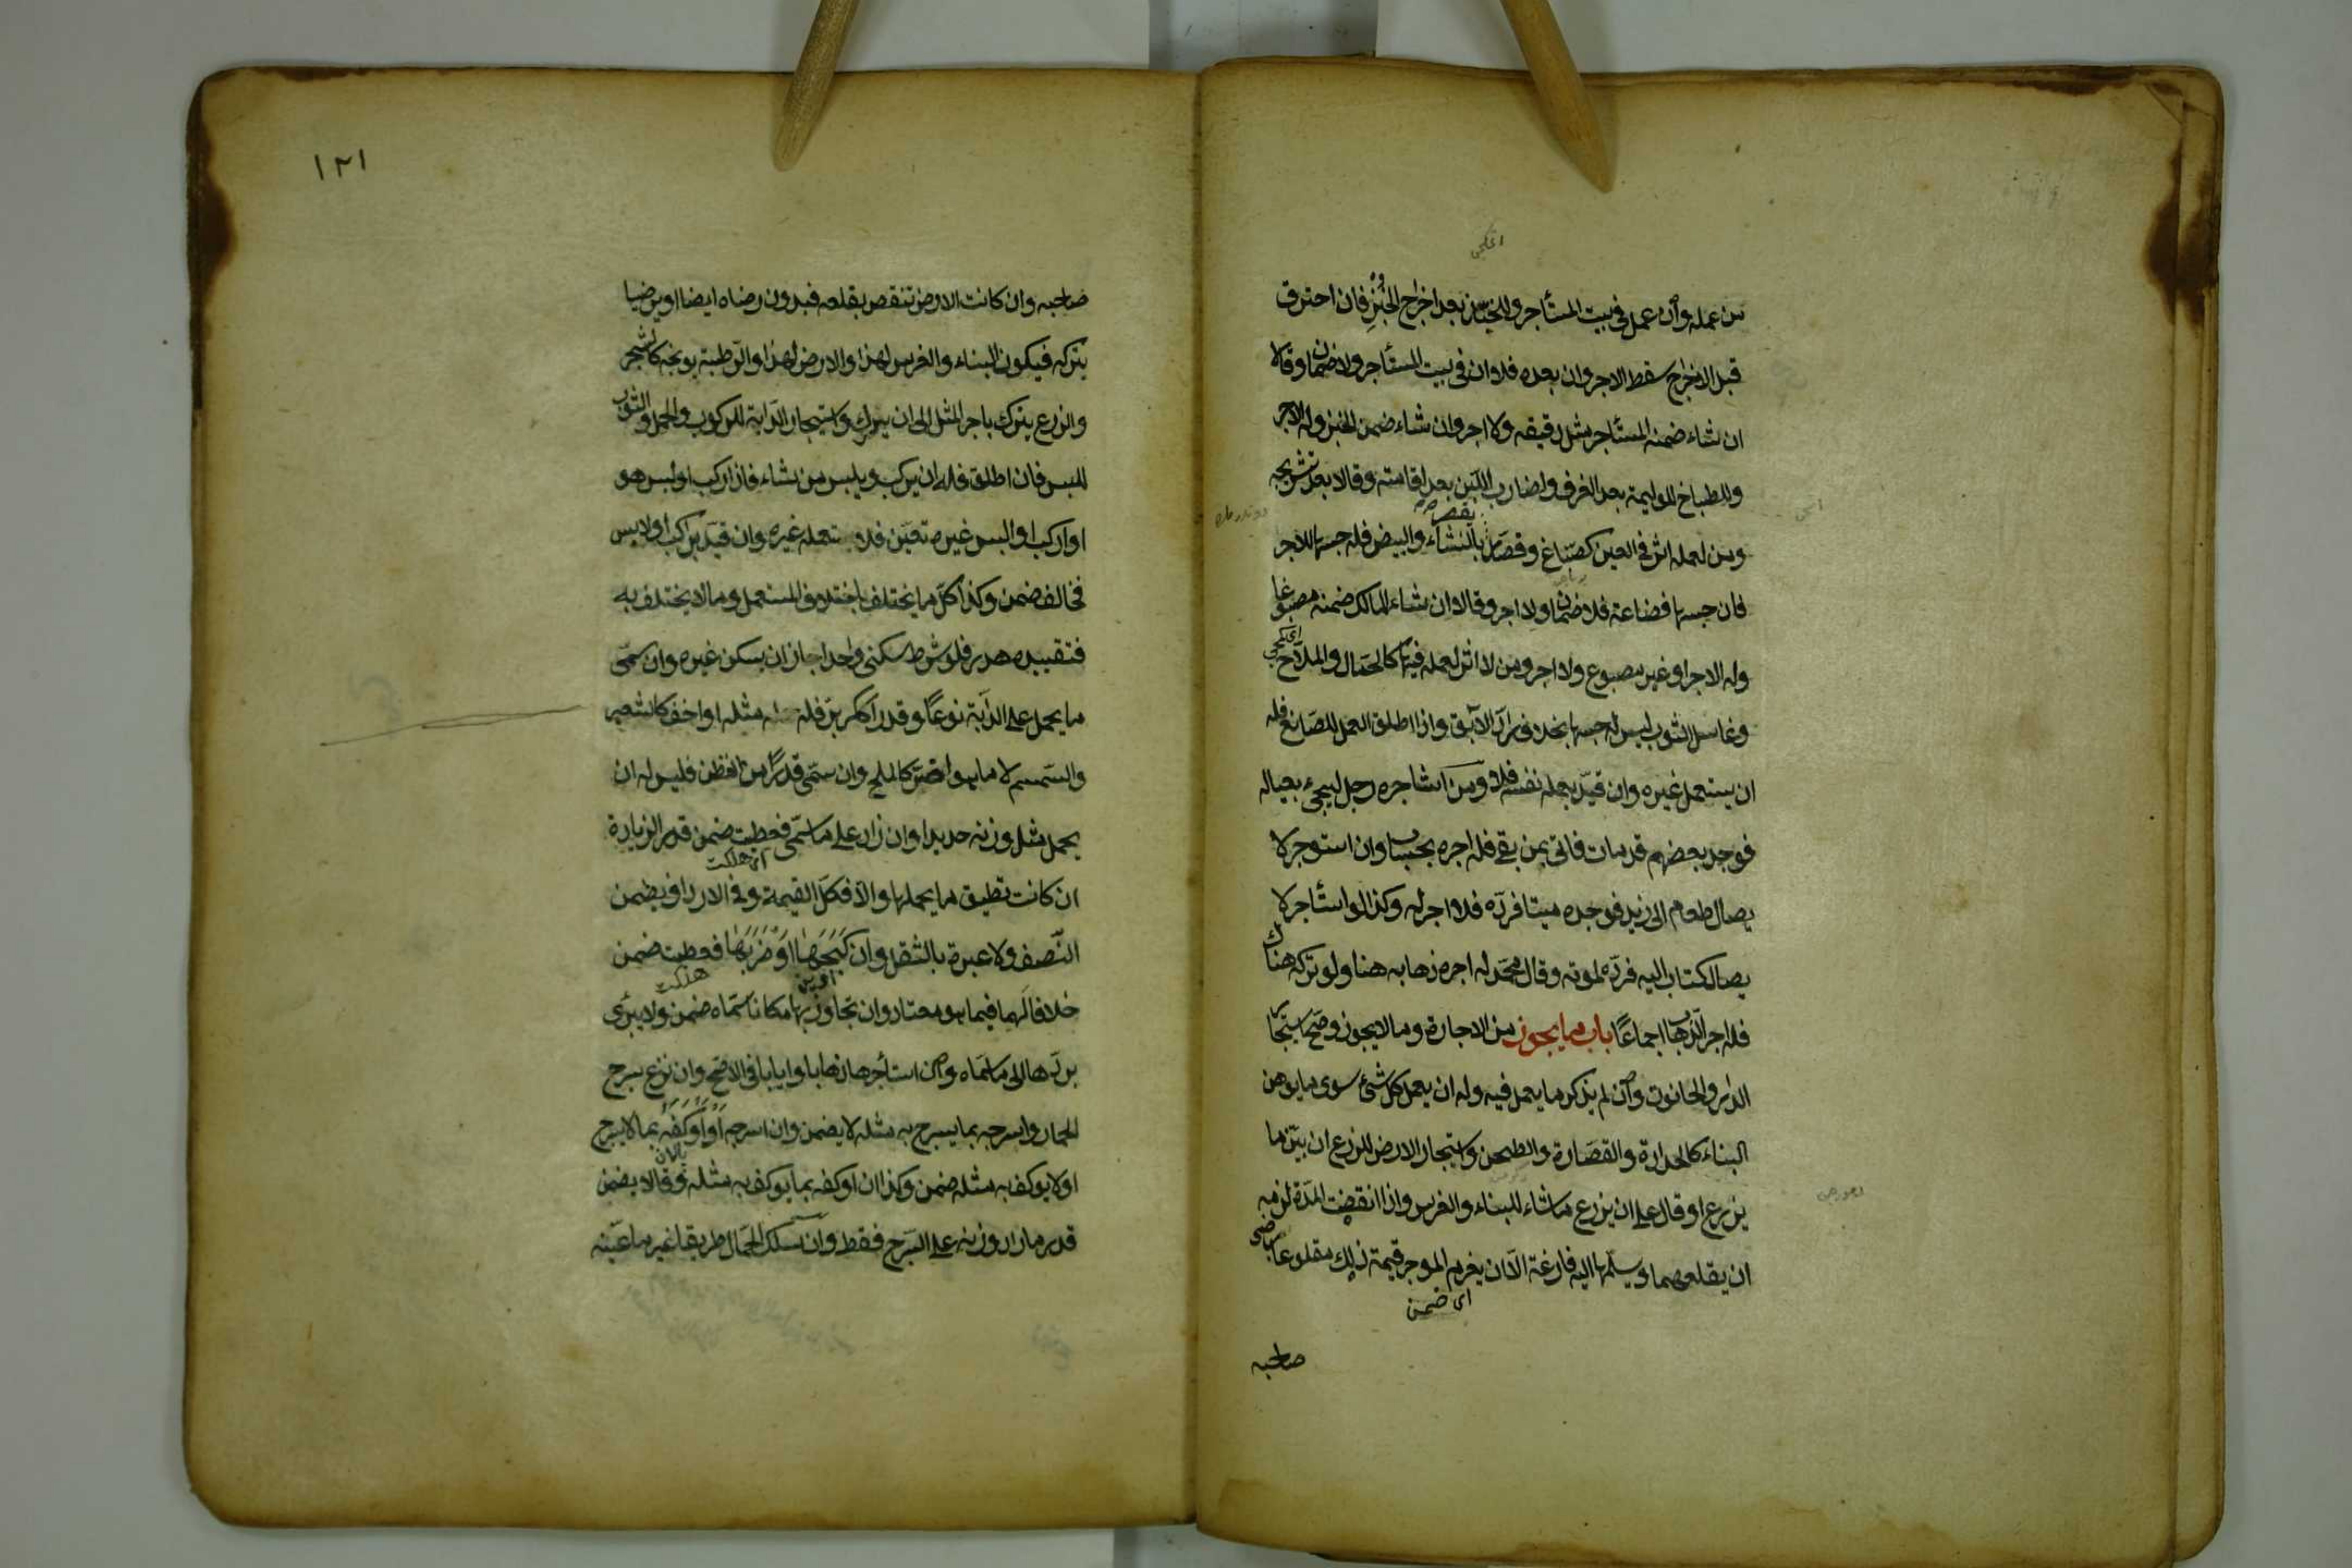 من عمله وان عمل فى بيت المستأجر وللخباز بعد اخراج الخُبْزِ فان احترق
قبل الاخراج سقط الاجر وان بعده فلا وان فى بيت المستأجر ولا ضمان وقالا
ان شاء ضمنه المستأجر مثل دقيقه ولا اجر وان شاء ضمن الخبز وله الاجر
وللطباخ للوليمة بعد الغرف ولضارب اللبن بعد اقامته وقالا بعد تشريجه
ومن لعمله اثر فى العين كصبّاغ وقصّار بالنشاء والبيض فله حبسها للاجر
فان حبسها فضاعة فلا ضمان ولا اجر وقالا ان شاء المالك ضمنه مصبوغا
وله الاجر او غير مصبوغ ولا اجر ومن لا اثر لعمله فيها كالحمّال والملاّح
وغاسل الثوب ليس له حبسها بخلاف رادّ الآبق واذا اطلق العمل للصانع فله
ان يستعمل غيره وان قيّد بعمله نفسه فلا ومن استاجره رجل ليجىء بعياله
فوجد بعضهم قد مات فاتى بمن بقى فله اجره بحسابه وان استوجر لا
يصال طعام الى زيد فوجده ميتا فردّه فلا اجر له وكذا لو استأجر لا
يصال كتاب اليه فردّه لموته وقال محمّد له اجر ذهابه هنا ولو تركه هناك
فله اجر الذهاب اجماعًا باب ما يجوز من الاجارة وما لا يجوز وصحّ استيجا
الدار والحانوت وان لم يذكر ما يعمل فيه وله ان يعمل كل شئ سوى ما يوهن
البناء كالحدادة والقصارة والطحن واستيجار الارض للزرع ان بيّن ما
يزرع او قال على ان يزرع ما شاء للبناء والغرس واذا انقضت المدّة لزمه
ان يقلعهما ويسلّمها اليه فارغة الاّ ان يغرم الموجر قيمة ذلك مقلوعا برضى
اى ضمن
صاحبه
١٢١
صاحبه وان كانت الارض تنقص بقلعه فبدون رضاه ايضا او يرضيا
بتركه فيكون البناء والغرس لهذا والارض لهذا والرّطبة كالشجر
والزرع يترك باجر المثل الى ان يدرك واستيجار الدّابة للركوب والحمل والثوب
للبس فان اطلق فله ان يركب ويلبس من شاء فاذا ركب او لبس هو
او اركب او البس غيره تعيّن فلا يستعمله غيره وان قيّد براكب او لابس
فخالف ضمن وكذا كلّ ما يختلف باختلاف المستعمل وما لا يختلف به
فتقييده هدر فلو شرط سكنى واحد جاز ان يسكن غيره وان سمّى
ما يحمل على الدابّة نوعًا وقدرا ككرّ برّ فله مثله او اخف كالشعير
والسمسم لا ما هو اضرّ كالملح وان سمّى قدرًا من القطن فليس له ان
يحمل مثل وزنه حديدا وان زاد على ما سمّى فعطبت ضمن قدر الزيادة
اى هلكت
ان كانت تطيق ما يحملها والاّ فكلّ القيمة وفى الارداف يضمن
النّصف ولا عبرة بالثقل وان كَبَحَهَا اوْ ضَرَبَهَا فعطبت ضمن
هلكت
خلافا لهما فيما هو معتاد وان تجاوز بها مكانا سمّاه ضمن ولا يبرى
بردّها الى ما سمّاه وان استأجرها ذهابا وايابا فى الاصحّ وان نزع سرج
الحمار واسرجه بما يسرج به مثله لا يضمن وان اسرجه اَوْ اَوْكَفَهُ بما لا يسرج
او لا يوكف به مثله ضمن وكذا ان اوكفه بما يوكف به مثله وقالا يضمن
قدر ما زاد وزنه على السّرج فقط وان سلك الحمّال طريقا غير ما عيّنه